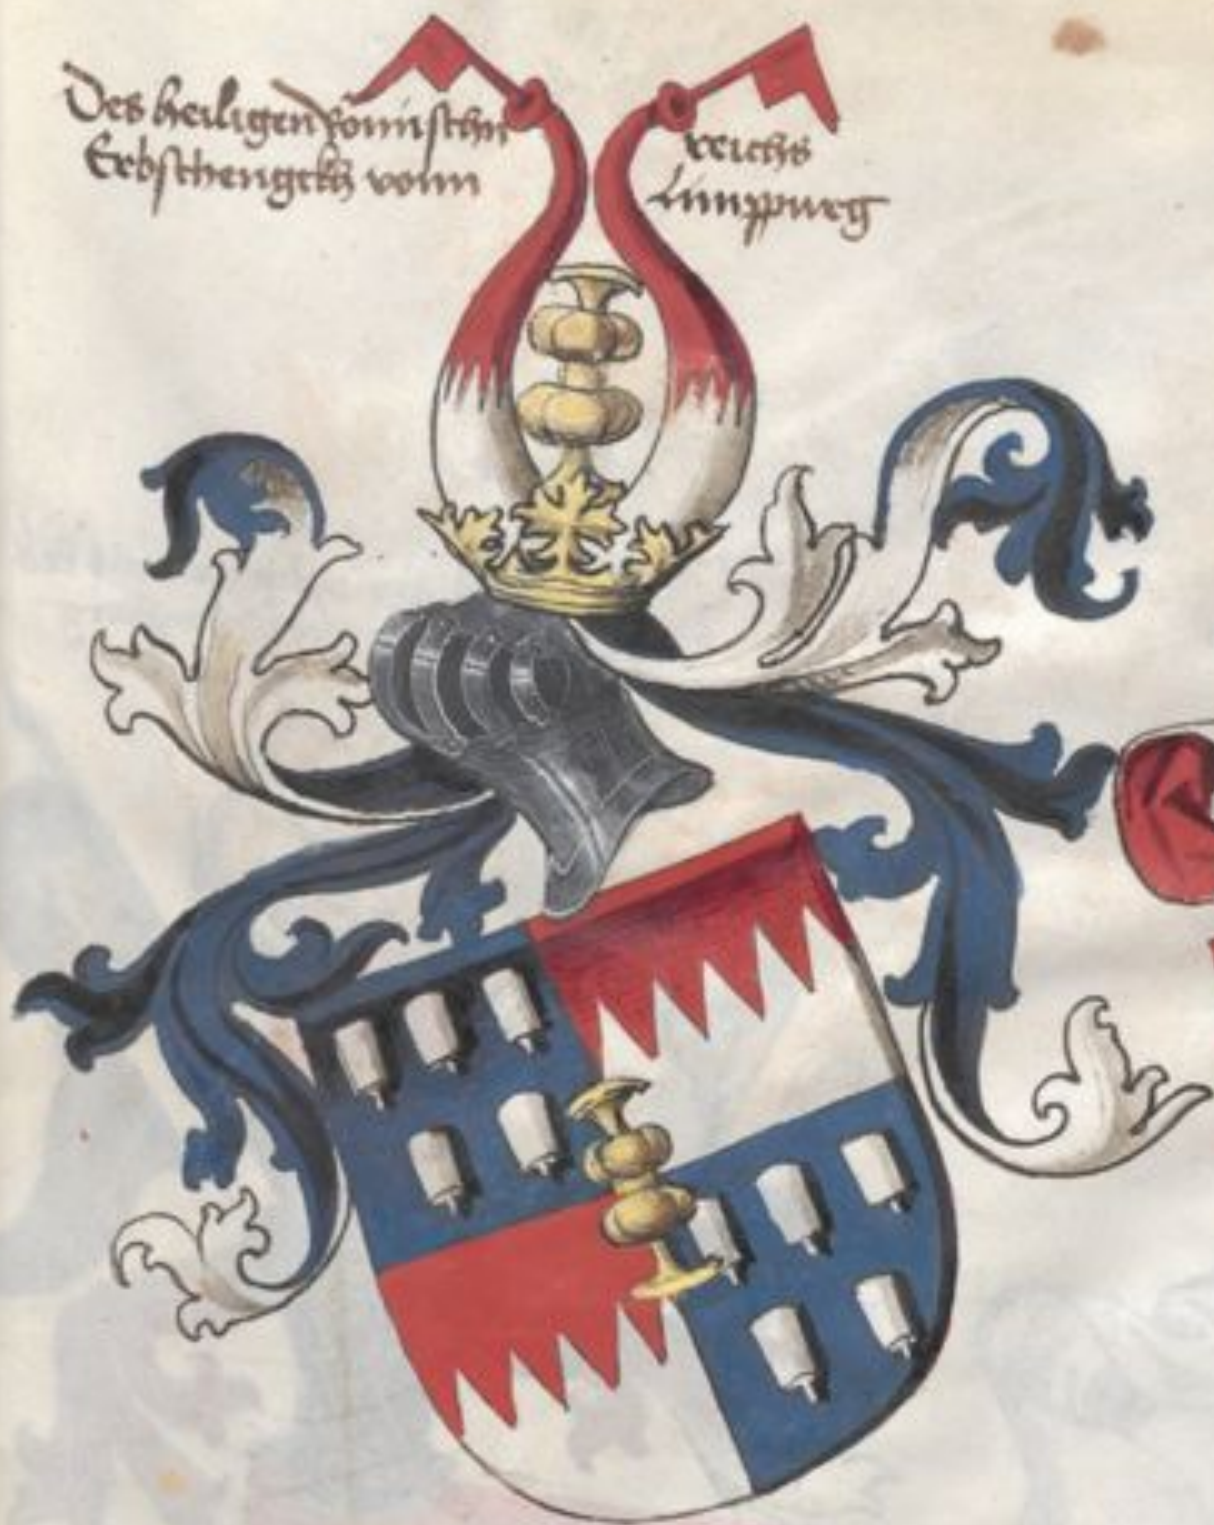 Des heiligen Romischn reichs
Erbschengckh vonn Limppurg